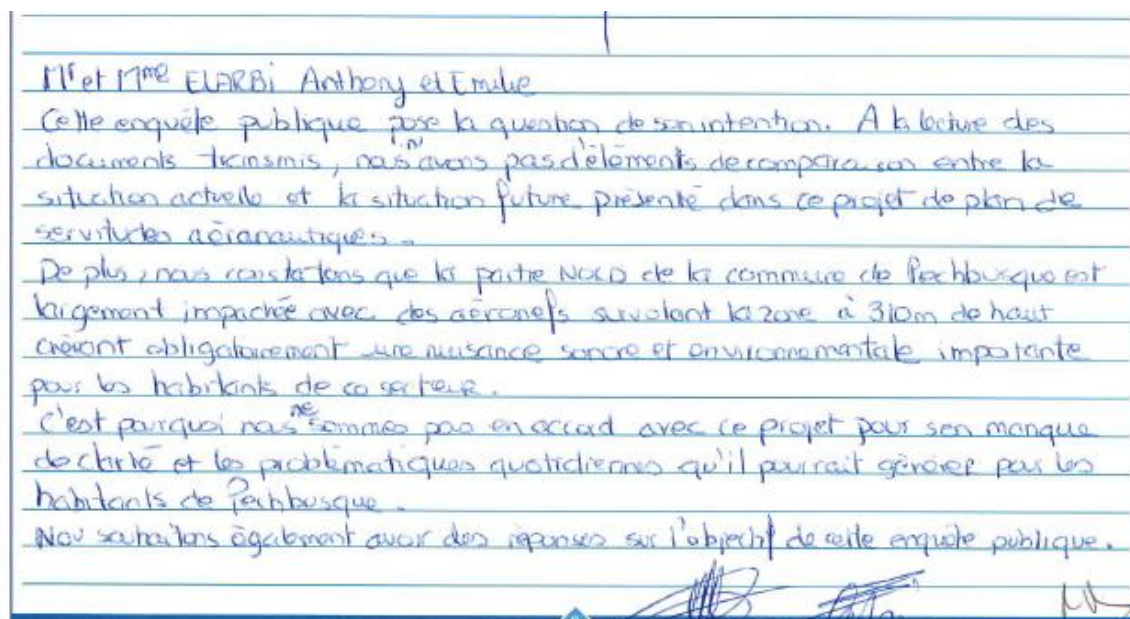 Mr et Mme ELARBI Anthony et Emilie
Cette enquête publique pose la question de son intention. A la lecture des
documents transmis, nous n'avons pas d'éléments de comparaison entre la
situation actuelle et la situation future présenté dans ce projet de plan de
servitudes aéronautiques.
De plus, nous constatons que la partie NORD de la commune de Pechbusque est
largement impactée avec des aéronefs survolant la zone à 310m de haut
créant obligatoirement une nuisance sonore et environnementale importante
pour les habitants de ce secteur.
C'est pourquoi nous ne sommes pas en accord avec ce projet pour son manque
de clarté et les problématiques quotidiennes qu'il pourrait générer pour les
habitants de Pechbusque.
Nous souhaitons également avoir des réponses sur l'objectif de cette enquête publique.